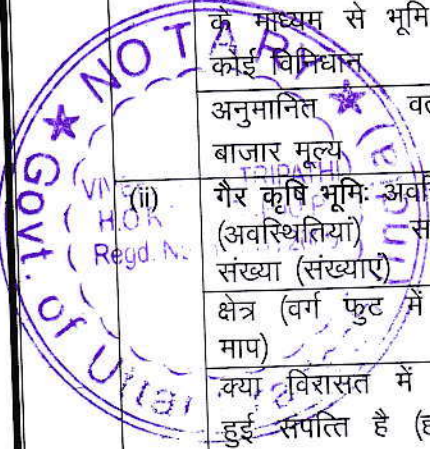 के माध्यम से भूमि
कोई विनिधान
अनुमानित
बाजार मूल्य
(ii) गैर कृषि भूमि:
(अवस्थितियां)
संख्या (संख्याएं)
क्षेत्र (वर्ग फुट में
माप)
क्या विरासत में
हुई संपत्ति है
NOTARY
Govt. of
TRIPATHI
Regd.